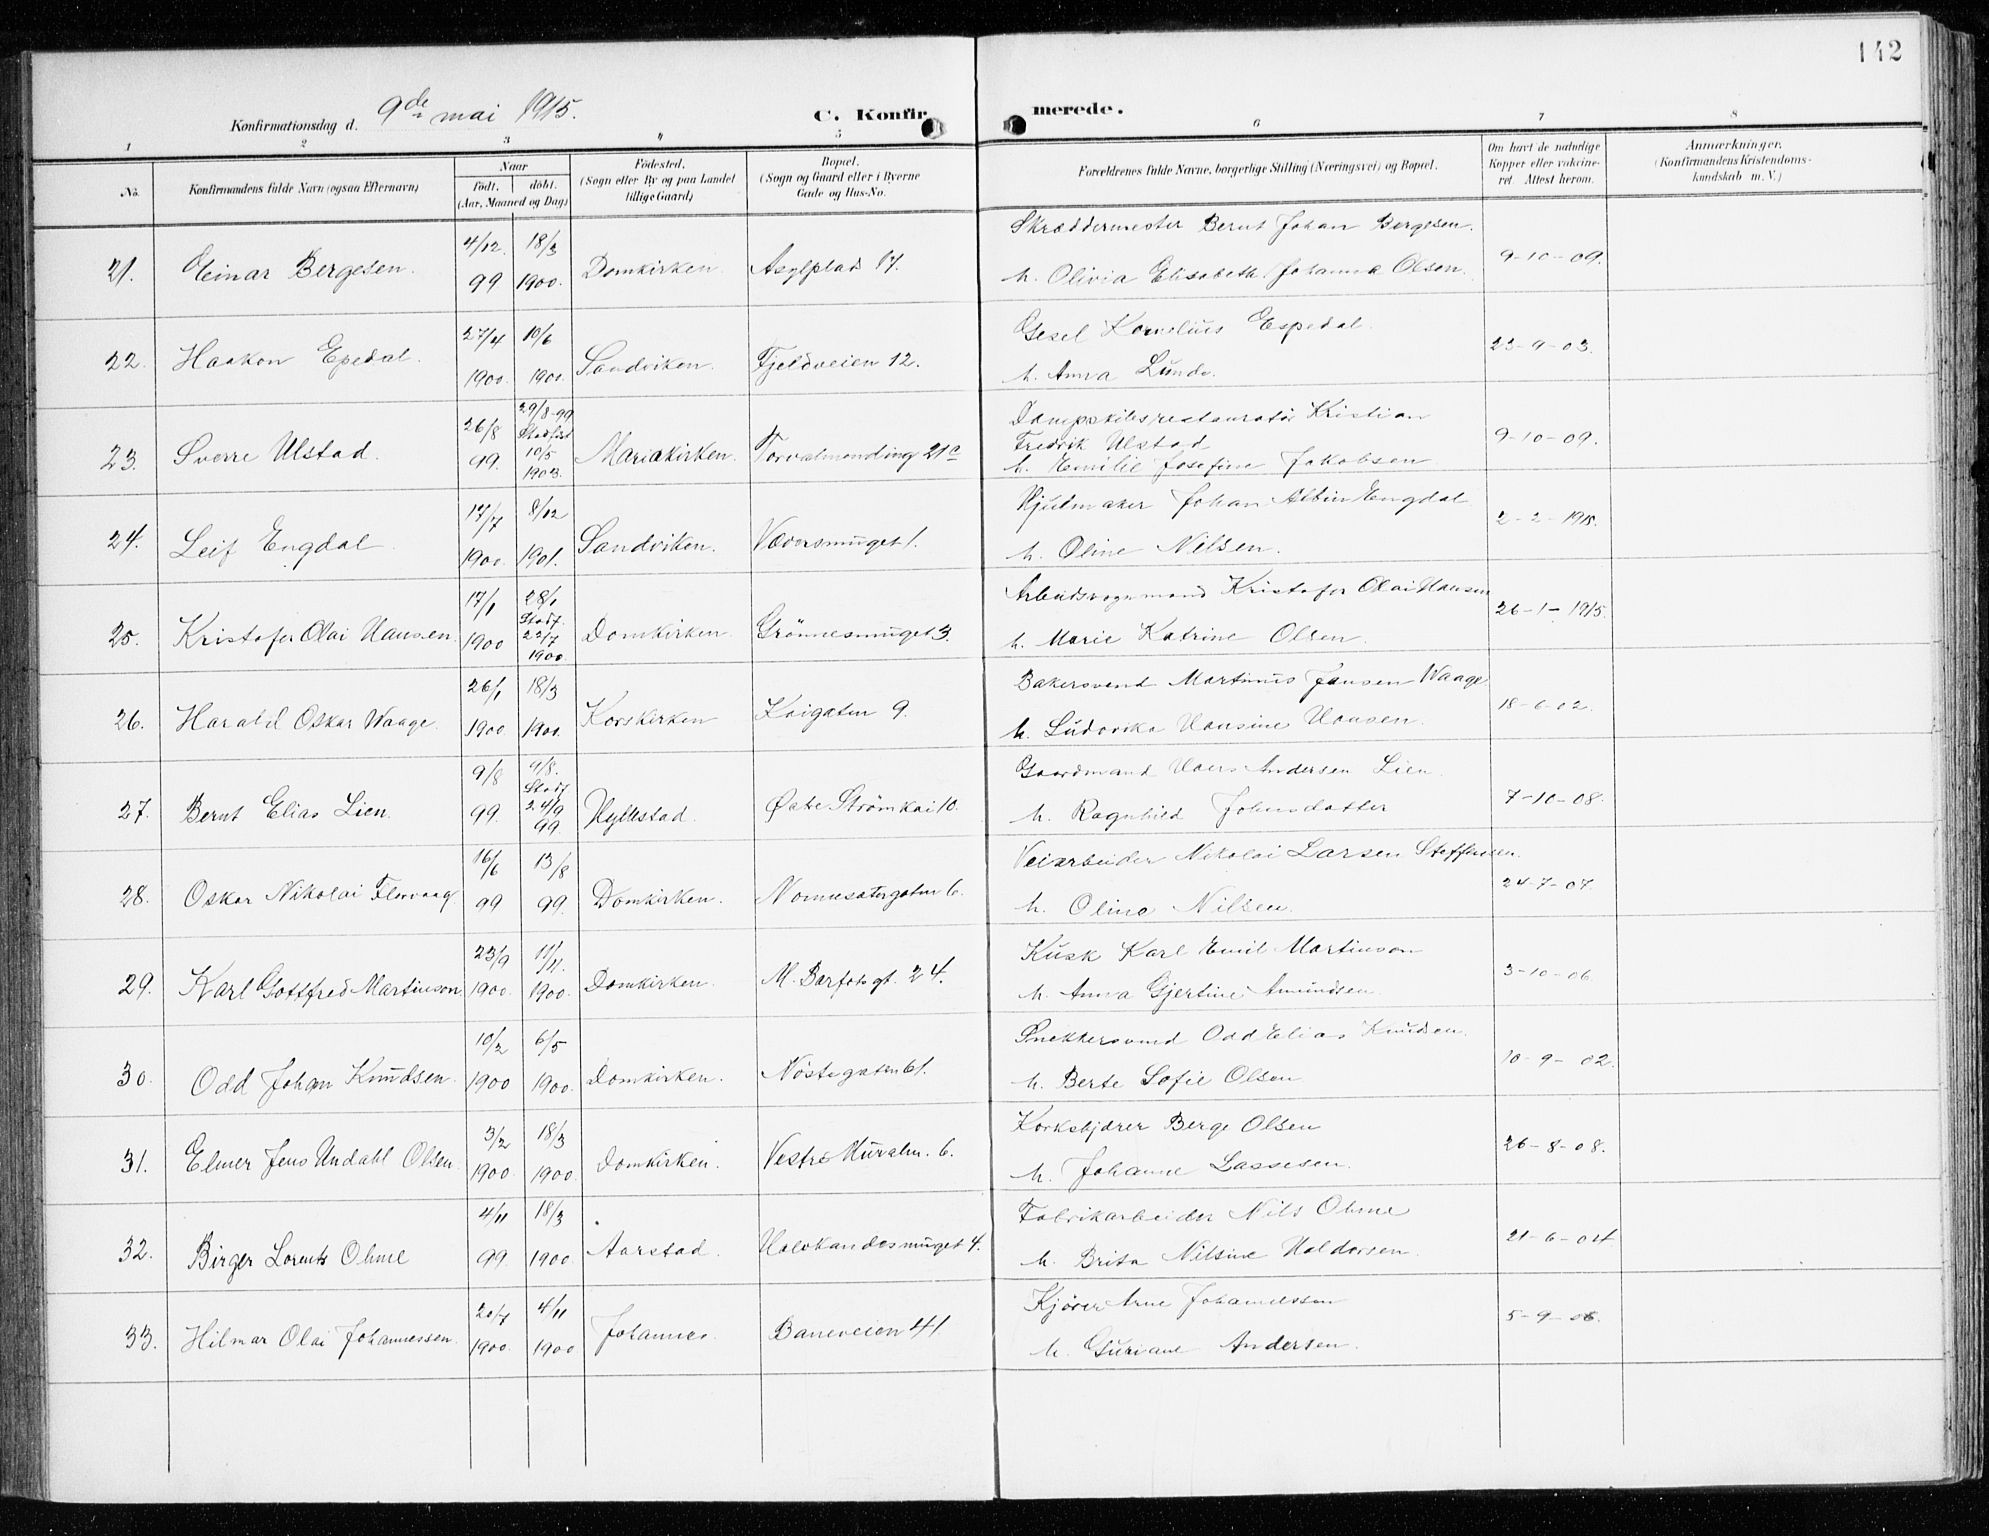 142
Konfirmationsdag d. 9de mai 1915. C. Konfirmerede.
1 2 3 4 5 6 7 8
No. Konfirmandens fulde Navn (ogsaa Efternavn) Naar födt. döbt. (Aar, Maaned og Dag) Födested. (Sogn eller By og paa Landet tillige Gaard) Bopæl. (Sogn og Gaard eller i Byerne Gade og Hus-No. Forældrenes fulde Navne, borgerlige Stilling (Næringsvei) og Bopæl. Om havt de naturlige Kopper eller vaccineret. Attest herom. Anmærkninger. (Konfirmandens Kristendomskundskab m. V.)
21. Einar Bergesen. 4/12 99 18/3 1900. Domkirken. Asylplads 17. Skræddermester Bernt Johan Bergesen. h. Olivia Elisabeth Johanna Olsen. 9-10-09.
22. Haakon Epedal. 27/4 1900. 10/6 1900. Sandviken. Fjeldveien 12. Gesel Kornelius Espedal. h. Anna Lunde. 23-9-03.
23. Sverre Ulstad. 26/8 99. 29/8-99 Stadfæst 10/5 1903. Mariakirken. Torvalmending 21c Dampskibsrestauratør Kristian Fredrik Ulstad h. Emilie Josefine Jakobsen. 9-10-09.
24. Leif Engdal. 17/7 1900. 8/12 1901. Sandviken. Væversmuget 1. Hjulmaker Johan Albin Engdal h. Oline Nilsen. 2-2-1915.
25. Kristofer Olai Hansen. 17/1 1900 28/1 Stadf. 22/7 1900. Domkirken. Grönnesmuget 3. Arbeidsvognmand Kristofer Olai Hansen h. Marie Katrine Olsen. 26-1-1915.
26. Harald Oskar Waage. 26/1 1900. 18/3 1900. Korskirken Kaigaten 9. Bakersvend Martinus Jansen Waage h. Ludovika Hansine Hansen. 18-6-02.
27. Bernt Elias Lien. 9/8 99. 9/8. Stadf 24/9 99. Hyllestad. Østre Strömkai 10. Gaardmand Hans Andersen Lien. h. Ragnhild Johnsdatter 7-10-08.
28. Oskar Nikolai Florvaag 16/6 99 13/8 99. Domkirken. Nonnesætergaten 6. Veiarbeider Nikolai Larsen Steffensen. h. Oline Nilsen. 24-7-07.
29. Karl Gottfred Martinson 23/9 1900. 11/11. 1900. Domkirken. M. Barfotsgt. 24. Kusk Karl Emil Martinson h. Anna Gjertine Amundsen. 3-10-06.
30. Odd Johan Knudsen. 10/2 1900 6/5 1900. Domkirken. Nöstegaten 61. Snekkersvend Odd Elias Knudsen. h. Berte Sofie Olsen 10-9-02.
31. Elmer Jens Undahl Olsen. 3/2 1900. 18/3 1900. Domkirken. Vestre Muralm. 6. Korkskjærer Berge Olsen h. Johanne Lassesen. 26-8-08.
32. Birger Lorents Ohme 4/11 99. 18/3 1900. Aarstad. Halvkandesmuget 4. Fabrikarbeider Nils Ohme h. Brita Nilsine Haldorsen. 21-6-04
33. Hilmar Olai Johannessen. 20/7 1900. 4/11 1900 Johannes. Baneveien 41. Kjører Arne Johannessen h. Guriane Andersen. 5-9-06.